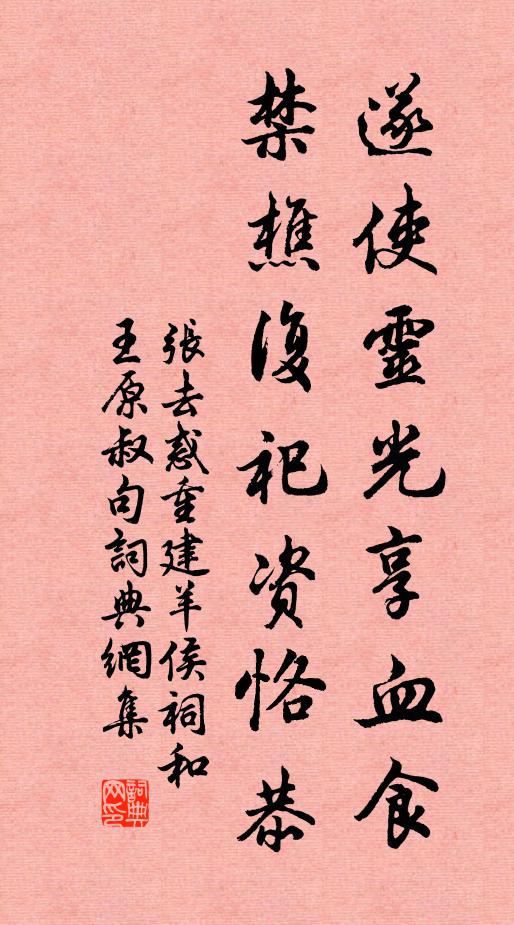 遂使靈光享血食
禁樵復祀资恪恭
張去惑重建羊侯祠和
王原叔句詞典網集
詞典网印